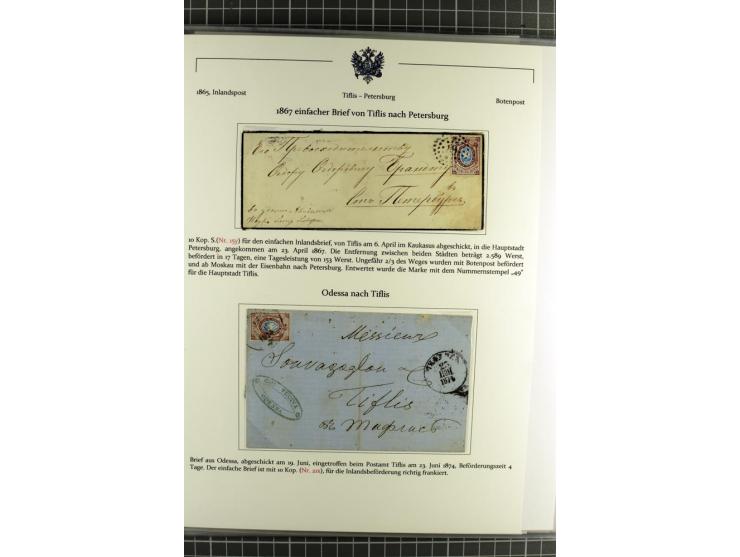 1865, Inlandspost
Tiflis – Petersburg
Botenpost
1867 einfacher Brief von Tiflis nach Petersburg
Его Превосходительству
Ѳедору Ѳедоровичу
въ
Санктъ Петербургъ
10 Kop. S.(Nr. 15y) für den einfachen Inlandsbrief, von Tiflis am 6. April im Kaukasus abgeschickt, in die Hauptstadt
Petersburg, angekommen am 23. April 1867. Die Entfernung zwischen beiden Städten beträgt 2.589 Werst,
befördert in 17 Tagen, eine Tagesleistung von 153 Werst. Ungefähr 2/3 des Weges wurden mit Botenpost befördert
und ab Moskau mit der Eisenbahn nach Petersburg. Entwertet wurde die Marke mit dem Nummernstempel „49"
für die Hauptstadt Tiflis.
Odessa nach Tiflis
Messieurs
Tiflis
1874
Brief aus Odessa, abgeschickt am 19. Juni, eingetroffen beim Postamt Tiflis am 23. Juni 1874, Beförderungszeit 4
Tage. Der einfache Brief ist mit 10 Kop. (Nr. 21x), für die Inlandsbeförderung richtig frankiert.